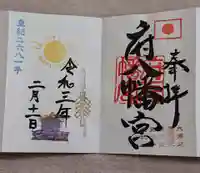 奉拝
府八幡宮
令和三年
二月十一日
皇紀二六八一年